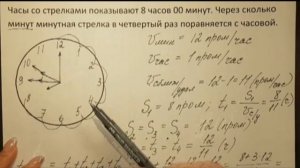 Часы со стрелками показывают 8 часов 00 минут. Через сколько
минут минутная стрелка в четвертый раз поравняется с часовой.
12
2
3
5
6
7
8
9
10
11
Vмин = 12 пром/час
Vчас = 1 пром/час
= 12-1 = 11 (пром/час)
S₁ = 8 пром, t₁ = = 8/11 (ч)
S₂ = S₃ = S₄ = 12 (пром)
t₂ = t₃ = t₄ = 12/11 (ч)
8+3·12